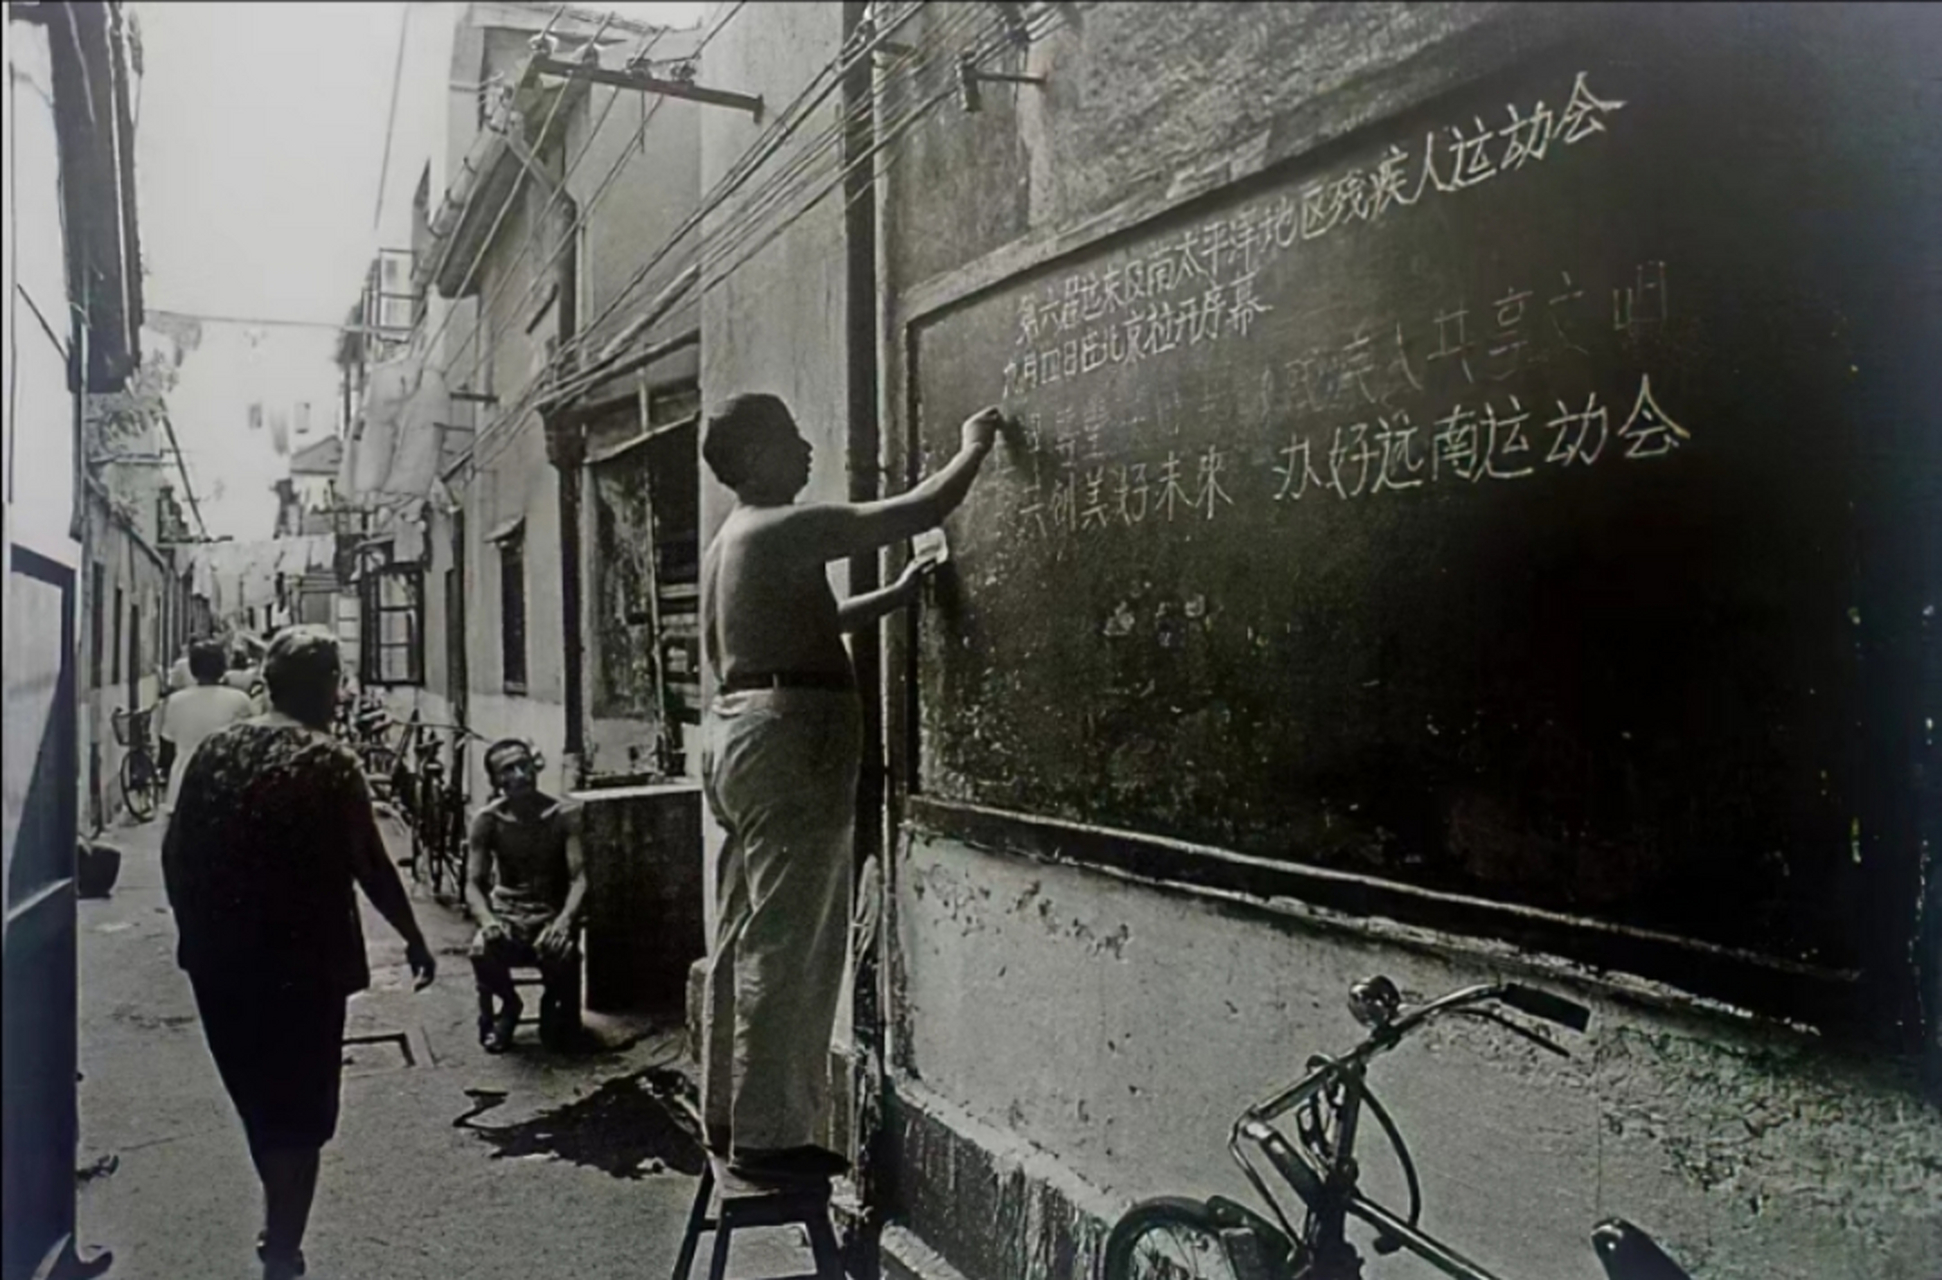 第六届远东及南太平洋地区残疾人运动会
九月四日在北京拉开序幕
残疾人共享文明
共创美好未来 办好远南运动会